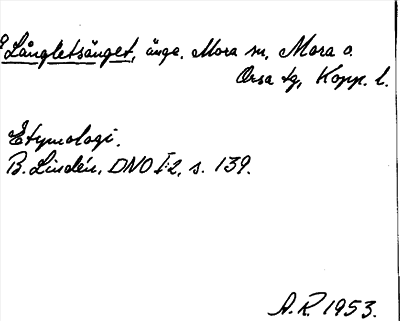 Långletsänget, änga. Mora sn, Mora o.
Orsa tg, Kopp. l.
Etymologi.
B. Lindén, DNO I:2, s. 139.
A.R. 1953.